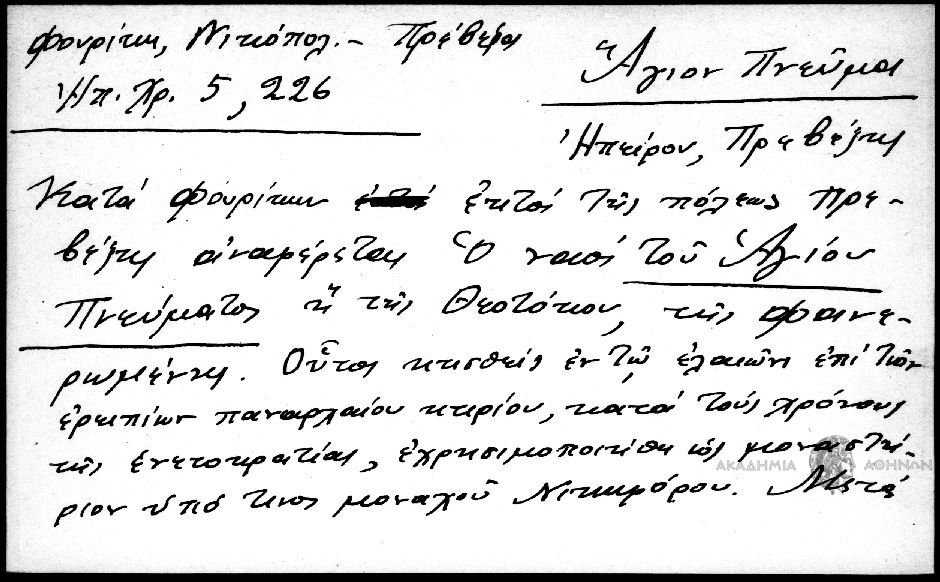 Φουρίκη, Νικόπολ. – Πρέβεζα
Ἠπ. Χρ. 5, 226
Ἅγιον Πνεῦμα
Ἠπείρου, Πρεβέζης
Κατά Φουρίκην ἐκτός τῆς πόλεως Πρε-
βέζης ἀναφέρεται Ὁ ναός τοῦ Ἁγίου
Πνεύματος ἤ τῆς Θεοτόκου, τῆς Φανε-
ρωμένης. Οὗτος κτισθείς ἐν τῷ ἐλαιῶνι ἐπί τῶν
ἐρειπίων παναρχαίου κτιρίου, κατά τούς χρόνους
τῆς ἑνετοκρατίας, ἐχρησιμοποιήθη ὡς μοναστή-
ριον ὑπό τινος μοναχοῦ Νικηφόρου. Μετά
ΑΚΑΔΗΜΙΑ ΑΘΗΝΩΝ